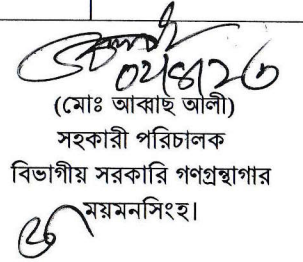 (মোঃ আব্বাছ আলী)
সহকারী পরিচালক
বিভাগীয় সরকারি গণগ্রন্থাগার
ময়মনসিংহ।